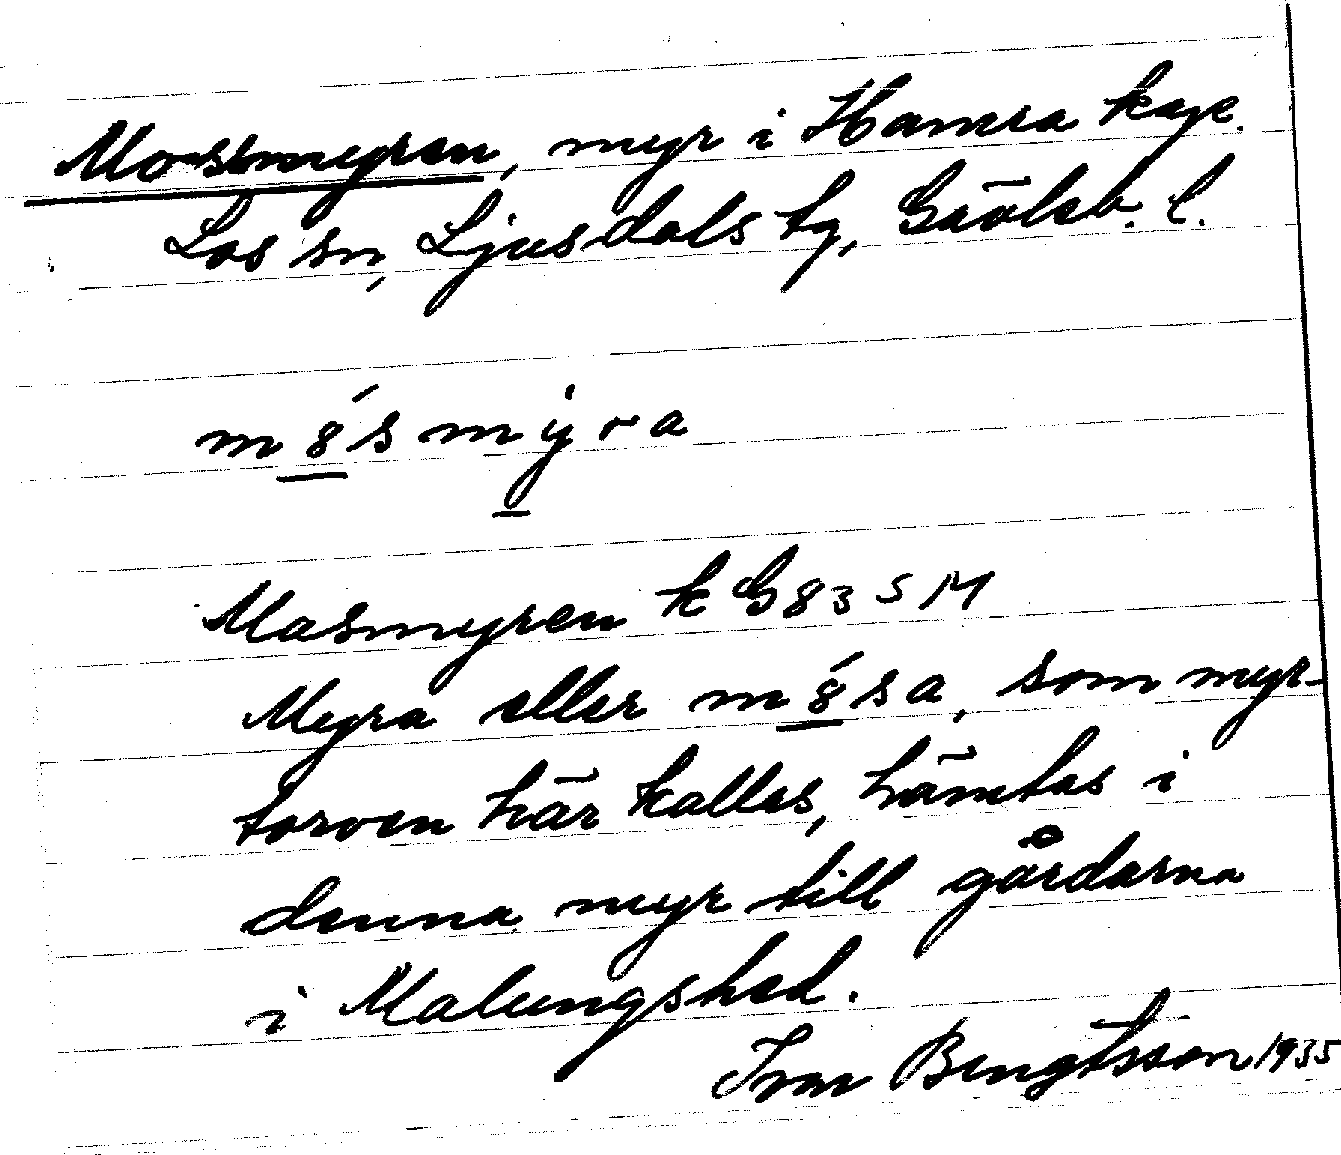 Mossmyren, myr i Hamra kage.
Los sn, Ljusdals tg, Gävleb. l.
m8́smy̍ra
Masmyren k G 83 S M
Myra eller m8́sa, som myr-
torven här kallas, hämtas i
denna myr till gårdarna
i Malungshed.
Ivar Bengtsson 1935